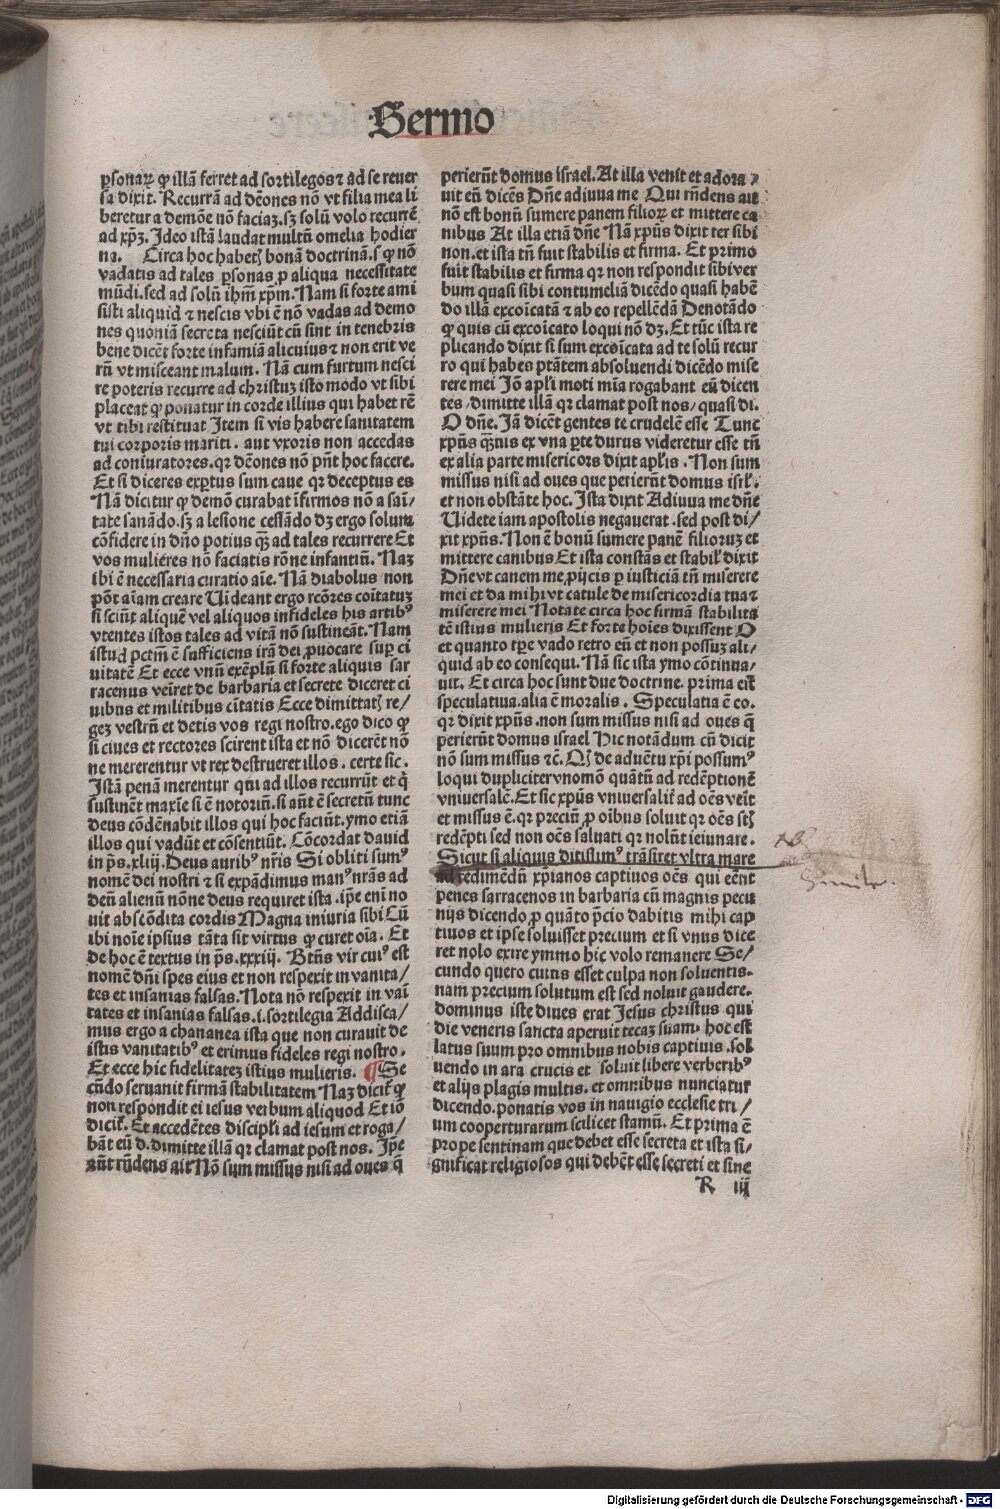 Sermo
ꝑsonaꝝ ꝙ illā ferret ad sortilegos ⁊ ad se reuer
sa dixit. Recurrā ad dēones nō vt filia mea li
beretur a demōe nō faciaꝫ. sꝫ solū volo recurrē
ad xp̄ꝫ. Jdeo istā laudat multū omelia hodier
na. Circa hoc habetꝭ bonā doctrinā. s ꝙ nō
vadatis ad tales ꝑsonas ꝓ aliqua necessitate
mūdi. sed ad solū ihm̄ xp̄m. Nam si forte ami
sisti aliquid ⁊ nescis vbi ē nō vadas ad demo
nes quoniā secreta nesciūt cū sint in tenebris
bene dicēt forte infamiā alicuius ⁊ non erit ve
rū vt misceant malum. Nā cum furtum nesci
re poteris recurre ad christuꝫ isto modo vt sibi
placeat ꝙ ponatur in corde illius qui habet rē
vt tibi restituat Jtem si vis habere sanitatem
tui corporis mariti. aut vxoris non accedas
ad coniuratores. qꝛ dēones nō pn̄t hoc facere.
Et si diceres exꝑtus sum caue qꝛ deceptus es
Nā dicitur ꝙ demō curabat īfirmos nō a sani-
tate sanādo. sꝫ a lesione cessādo dꝫ ergo solum
cōfidere in dn̄o potius qꝫ ad tales recurrere Et
vos mulieres nō faciatis rōne infantiū. Naꝫ
ibi ē necessaria curatio aīe. Nā diabolus non
pōt aīam creare Uideant ergo rcōres coītatuꝫ
si sciūt aliquē vel aliquos infideles his artibꝰ
vtentes istos tales ad vitā nō sustineāt. Nam
istud pctm̄ ē sufficiens irā dei ꝓuocare suꝑ ci
uitatē Et ecce vnū exēplū si forte aliquis sar
racenus veīret de barbaria et secrete diceret ci
uibus et militibus cītatis Ecce dimittatꝭ re/
geꝫ vestrū et detis vos regi nostro. ego dico ꝙ
si ciues et rectores scirent ista et nō dicerēt nō
ne mererentur vt rex destrueret illos. certe sic.
Jstā penā merentur qui ad illos recurrūt et q̄
sustinēt maxīe si ē notoriū. si aūt ē secretū tunc
deus cōdēnabit illos qui hoc faciūt. ymo etiā
illos qui vadūt et cōsentiūt. Cōcordat dauid
in p̄s. xliij. Deus auribꝰ nr̄is Si obliti sumꝰ
nomē dei nostri ⁊ si expādimus manꝰ nrās ad
deū alienū nōne deus requiret ista. ip̄e eni no
uit abscōdita cordis Magna iniuria sibi Cū
ibi noīe ipsius tāta sit virtus ꝙ curet oīa. Et
de hoc ē textus in p̄s. xxxiij. Btn̄s vir cuiꝰ est
nomē dn̄i spes eius et non respexit in vanita/
tes et insanias falsas. Nota nō respexit in vaī
tates et insanias falsas. i. sortilegia Addisca/
mus ergo a chananea ista que non curauit de
istis vanitatibꝰ et erimus fideles regi nostro.
Et ecce hic fidelitateꝫ istius mulieris. ¶ Se
cūdo seruauit firmā stabilitatem Naꝫ dicit̄ ꝙ
non respondit ei iesus verbum aliquod Et iō
dicit̄. Et accedētes discipl̄i ad iesum et roga/
bāt eū d. dimitte illā qꝛ clamat post nos. Jpe
aūt rn̄dens ait Nō sum missus nisi ad oues q̄
perierūt domus israel. At illa venit et adora /
uit eū dicēs Dn̄e adiuua me Qui rn̄dens ait
nō est bonū sumere panem filioꝝ et mittere ca
nibus At illa etiā dn̄e Nā xpn̄s dixit ter sibi
non. et ista tn̄ fuit stabilis et firma. Et primo
fuit stabilis et firma qꝛ non respondit sibi ver
bum quasi sibi contumeliā dicēdo quasi habē
do illā excoīcatā ⁊ ab eo repellēdā Denotādo
ꝙ quis cū excoīcato loqui nō dꝫ. Et tūc ista re
plicando dixit si sum excoīcata ad te solū recur
ro qui habes ptātem absoluendi dicēdo mise
rere mei Jō apl̄i moti mīa rogabant eū dicen
tes. dimitte illā qꝛ clamat post nos/ quasi di.
O dn̄e. Jā dicēt gentes te crudelē esse Tunc
xpn̄s qꝫuis ex vna ꝑte durus videretur esse tn̄
ex alia parte misericors dixit apl̄is. Non sum
missus nisi ad oues que perierūt domus isrl̄.
et non obstāte hoc. Jsta dixit Adiuua me dn̄e
Uidete iam apostolis negauerat. sed post di/
xit xpn̄s. Non ē bonū sumere panē filioruꝫ et
mittere canibus Et ista constās et stabil̄ dixit
Dn̄e vt canem me ꝓijcis ꝑ iusticiā tn̄ miserere
mei et da mihi vt catule de misericordia tua ⁊
miserere mei Notate circa hoc firmā stabilita
tē istius mulieris Et forte hoīes dixissent O
et quanto tꝑe vado retro eū et non possuꝫ ali/
quid ab eo consequi. Nā sic ista ymo cōtinua/
uit. Et circa hoc sunt due doctrine. prima est
speculatiua. alia ē moralis. Speculatia ē co.
qꝛ dixit xpn̄s. non sum missus nisi ad oues q̄
perierūt domus israel Hic notādum cū dicit
nō sum missus ⁊c. Qꝫ de aduētu xp̄i possumꝰ
loqui dupliciter vnomō quātū ad redēptionē
vniuersalē. Et sic xpn̄s vniuersalit̄ ad oēs veīt
et missus ē. qꝛ preciū ꝓ oibus soluit qꝛ oēs st̄
redēpti sed non oēs saluati qꝛ nolūt ieiunare.
Sicut si aliquis ditissimꝰ trāsiret vltra mare
ad redimēdū xp̄ianos captiuos oēs qui eēnt
penes sarracenos in barbaria cū magnis pecu
nijs dicendo ꝓ quāto p̄cio dabitis mihi cap
tiuos et ipse soluisset precium et si vnus dice
ret nolo exire ymmo hic volo remanere Se/
cundo quero cuius esset culpa non soluentis.
nam precium solutum est sed noluit gaudere.
dominus iste diues erat Jesus christus qui
die veneris sancta aperuit tecaꝫ suam. hoc est
latus suum pro omnibus nobis captiuis. sol
uendo in ara crucis et soluit libere verberibꝰ
et alijs plagis multis. et omnibus nunciatur
dicendo. ponatis vos in nauigio ecclesie tri/
um cooperturarum scilicet statuū. Et prima ē
prope sentinam que debet esse secreta et ista si/
gnificat religiosos qui debēt esse secreti et sine
R iij
NB
Simile.
Digitalisierung gefördert durch die Deutsche Forschungsgemeinschaft - DFG